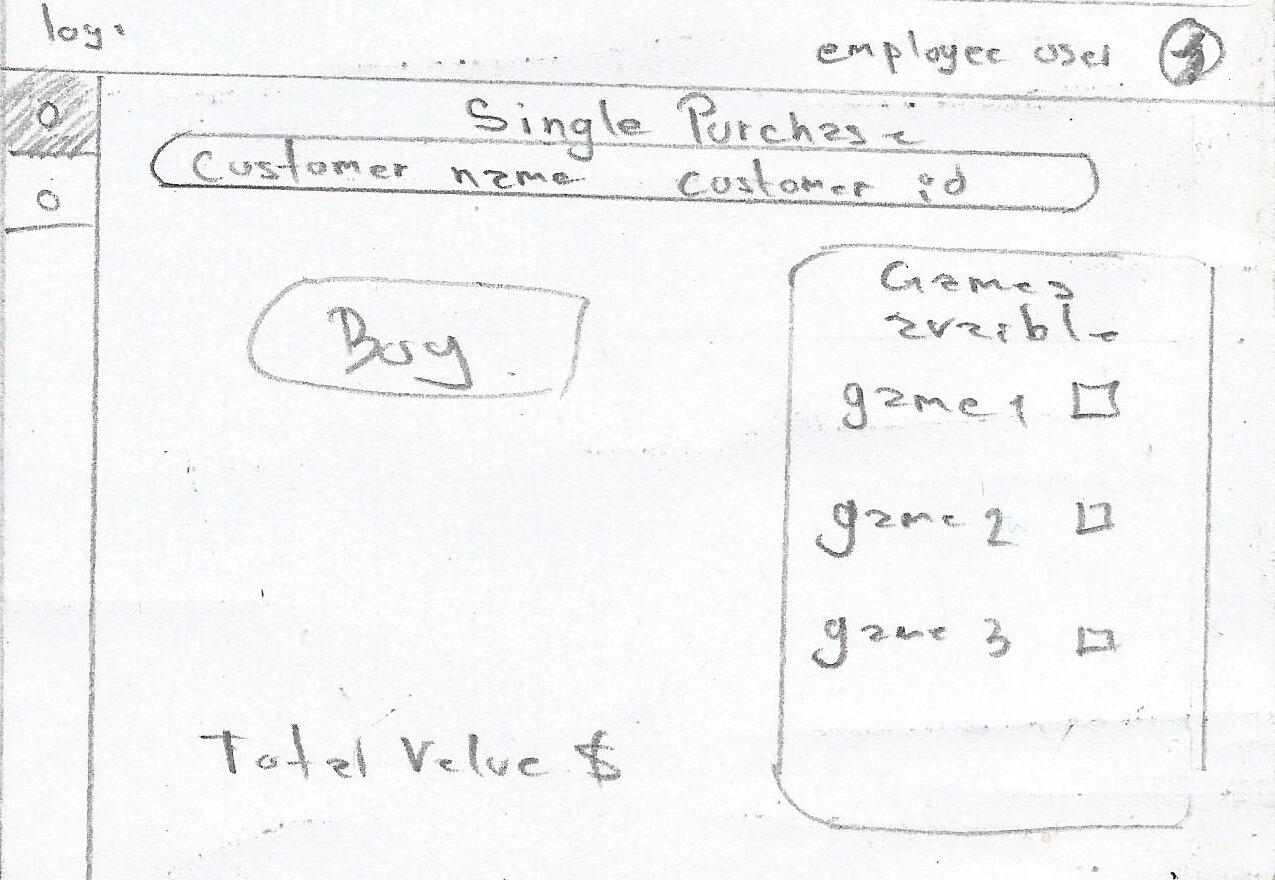 logo
employee user
Single Purchase
Customer name customer id
Games
avaible
Buy
game 1
game 2
game 3
Total Value $